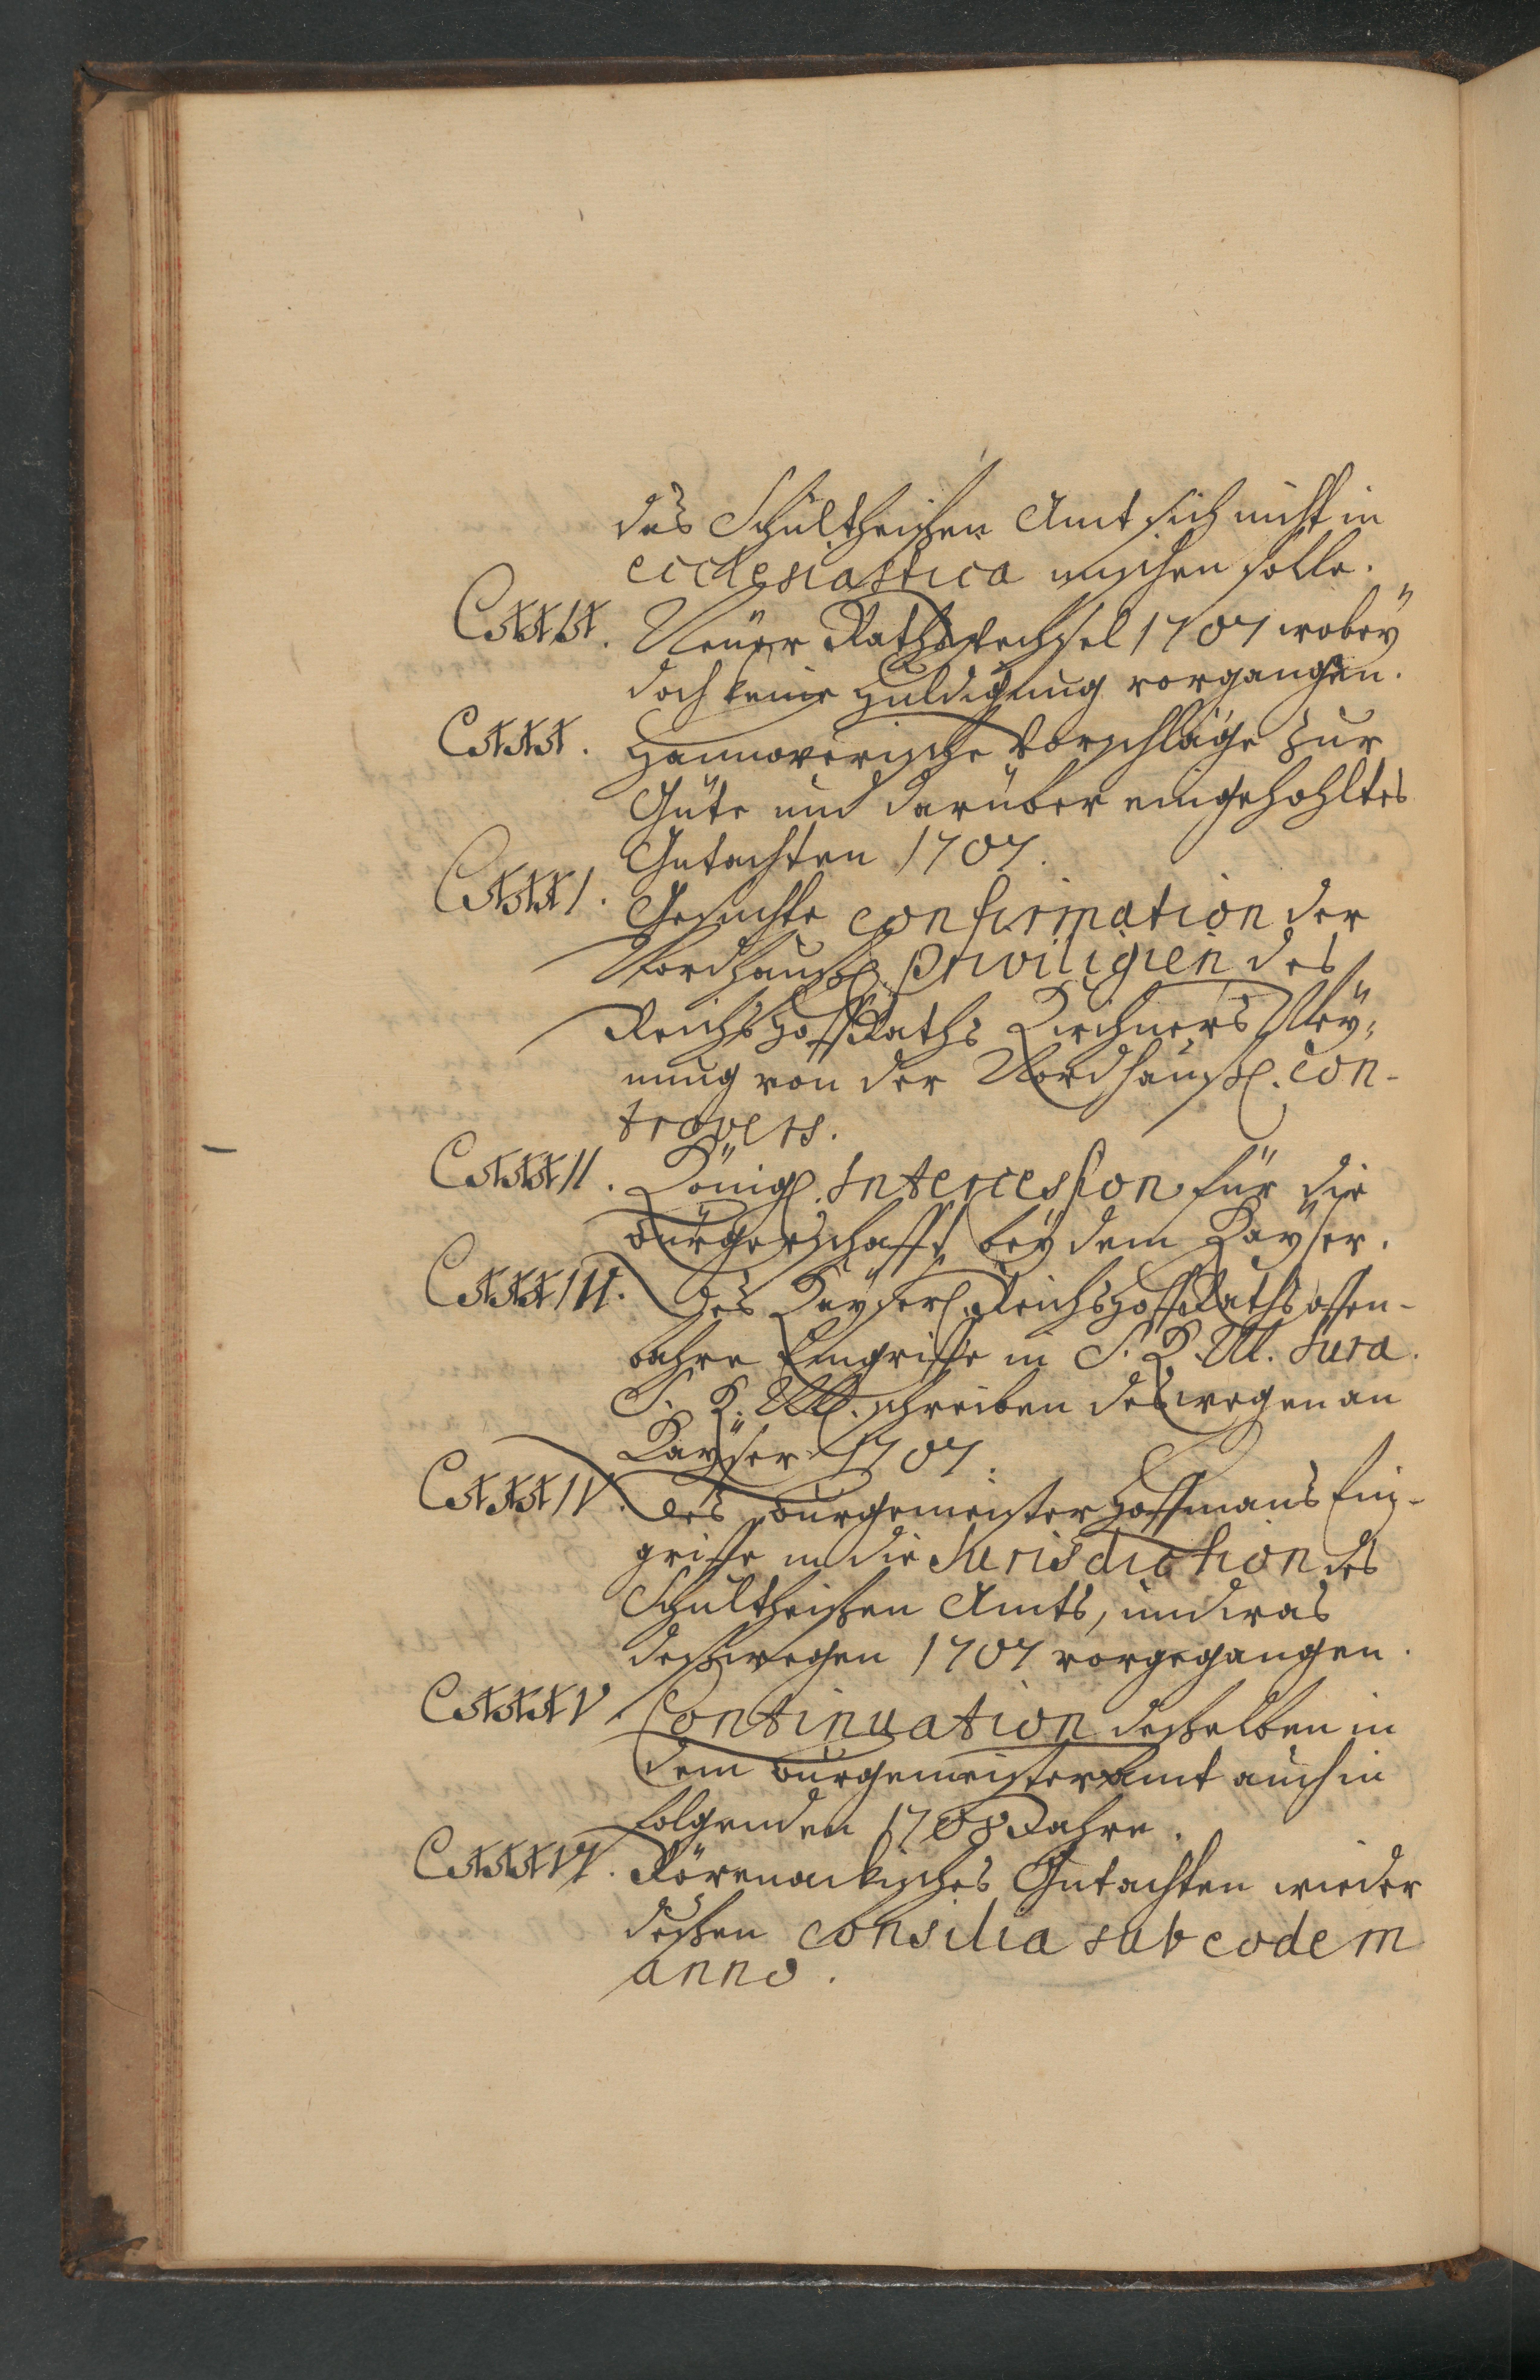 das Schultheißen Amt sich nicht in
ecclesiastica mischen solle.
CXXIX. Neüer Rathswechsel 1707 wobeÿ
doch keine Huldigung vorgangen.
CXXX. Hannoverische Vorschläge zur
Güte und darüber eingehohltes
Gutachten 1707.
CXXXI. Gesuchte confirmation der
Nordhauß. Priviligien des
ReichsHoffRaths Kirchners Meÿ-
nung von der Nordhauß. con-
travers.
CXXXII. Königl. Intercession für die
Bürgerschafft beÿ dem Kaÿser.
CXXXIII. Des Kaÿserl. ReichsHoffRaths offen-
bahre Eingriffe in S. K. M. Jura.
S. K. M. schreiben deswegen an
Kaÿser 1707.
CXXXIV. Des Burgemeister Hoffmans Ein-
griffe in die Jurisdiction des
Schultheißen Amts, und was
deßwegen 1707 vorgegangen.
CXXXV Continuation desselben in
dem Burgemeister Amt auch in
folgenden 1708 Jahre.
CXXXVI. Gutachten wieder
deßen consilia sub eodem
anno.